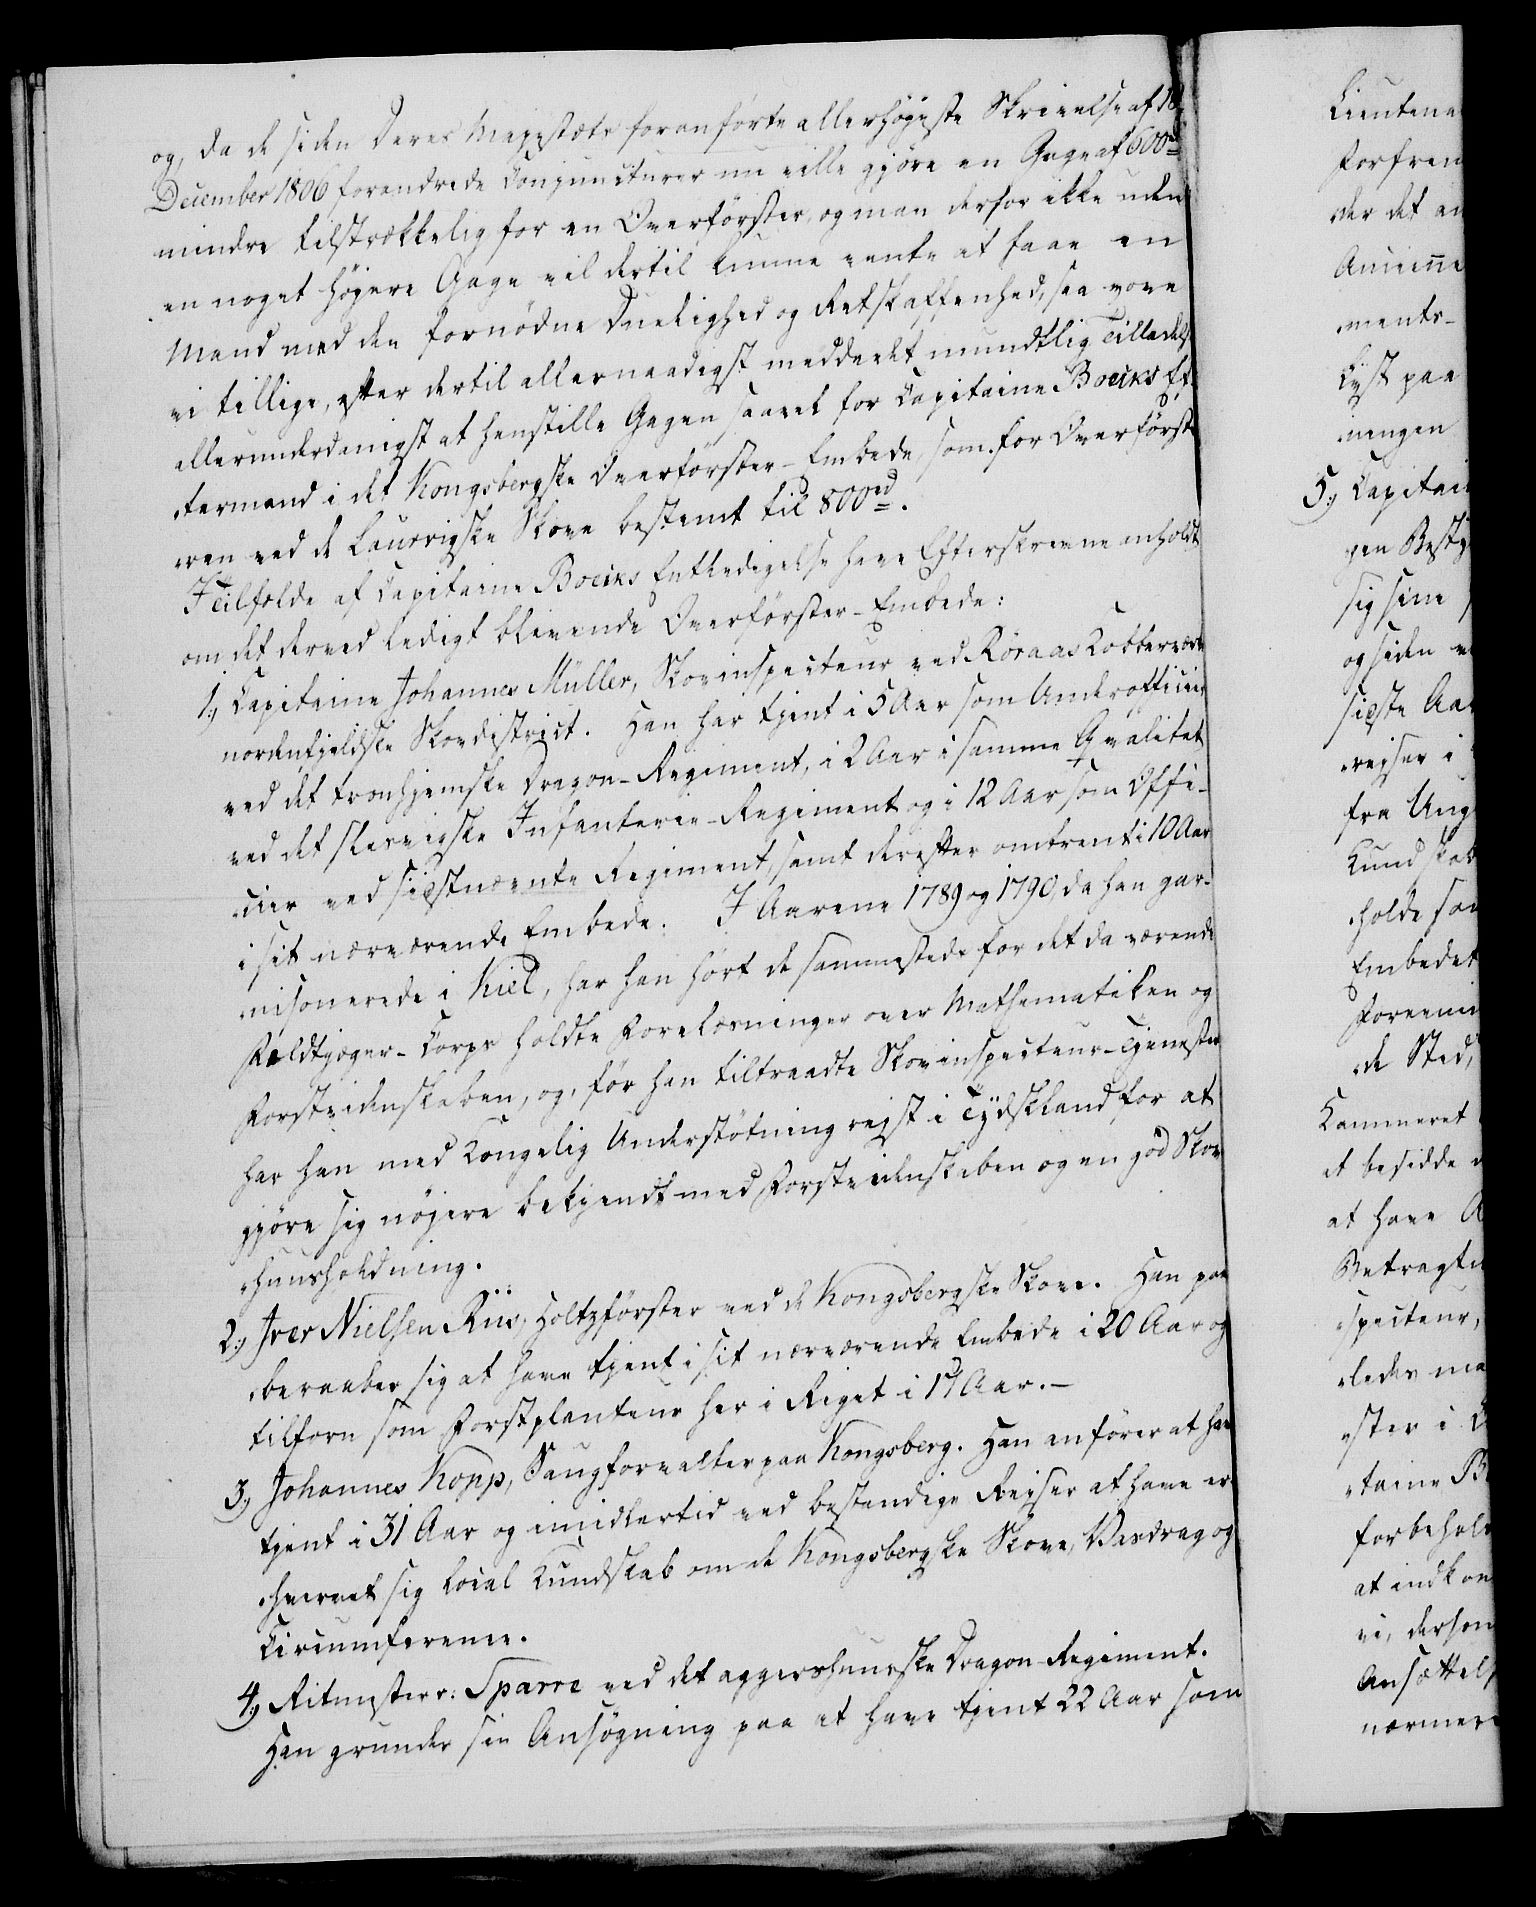 og, da de siden Deres Majestæts foranførte allerhøyeste Skrivelse af 18
December 1806 forandrede Conjuncturer nu ville gjøre en Gage af 600 rd
mindre tilstrækkelig for en Overførster, og man derfor ikke uden
en noget høyere Gage vil dertil kunne vente at faae en
Mand med den fornødne Duelighed og Retskaffenhed, saa vove
vi tillige, efter dertil allernaadigst meddeelt mundtlig Tilladelse
allerunderdanigst at henstille Gagen saavel for Capitaine Boecks Ef-
termand i det Kongsbergske Overførster-Embede, som for Overførste
ren ved de Laurvigske Skove bestemt til 800 rd.
I Tilfælde af Capitaine Boecks Entledigelse have Efterskrevne anholdt
om det derved ledigt blivende Overførster-Embede:
1., Capitaine Johannes Müller, Skovinspecteur ved Røraas Kobberværks
nordenfjeldske Skovdistrict. Han har tjent i 5 Aar som Underofficier
ved det tronhjemske Dragon-Regiment, i 2 Aar i samme Qvalitet
ved det slesvigske Infanterie-Regiment og i 12 Aar som Offi-
cier ved sidstnævnte Regiment, samt derefter omtrent i 10 Aar
i sit nærværende Embede. I Aarene 1789 og 1790, da han gar-
nisonerede i Kiel, har han hørt de sammestede for det da værende
Feldtjæger-Corps holdte Forelæsninger over Mathematiken og
Forstvidenskaben, og, før han tiltraadte Skovinspecteur-Tjenesten
har han med Kongelig Understøtning reist i Tydskland for at
gjøre sig nøjere bekjendt med Forstvidenskaben og en god Skov
huusholdning.
2., Iver Nielsen Riis, Holtzførster ved de Kongsbergske Skove. Han paa
beraaber sig at have tjent i sit nærværende Embede i 20 Aar og
tilforn som Forstplanteur her i Riget i 17 Aar.-
3., Johannes Kopp, Saugforvalter paa Kongsberg. Han anfører at have
tjent i 31 Aar og imidlertid ved bestandige Reyser at have er-
hvervet sig local Kundskab om de Kongsbergske Skove, Vasdrag og
Circumference.
4., Ritmester v: Sparre ved det aggershuusske Dragon-Regiment.
Han grunder sin Ansøgning paa at have tjent 22 Aar som
Lieutena
forfrem
der det an
Ancienne
ments-
Lyst paa
ningen
5., Capitai
gen Besty
sig sine
og siden
sidste Aar
reiser i
fra Ung
Kundskab
holde san
Embedet
foreeni
de Sted,
Kammeret
at besidde
at have
Betragtn
specteur,
ledes ma
ster i
taine B
forbehold
at indkom
vi, dersom
Ansættels
nærmere